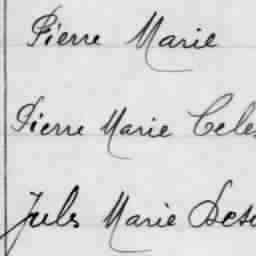 Pierre Marie
Pierre Marie Celes
Jules Marie Dese